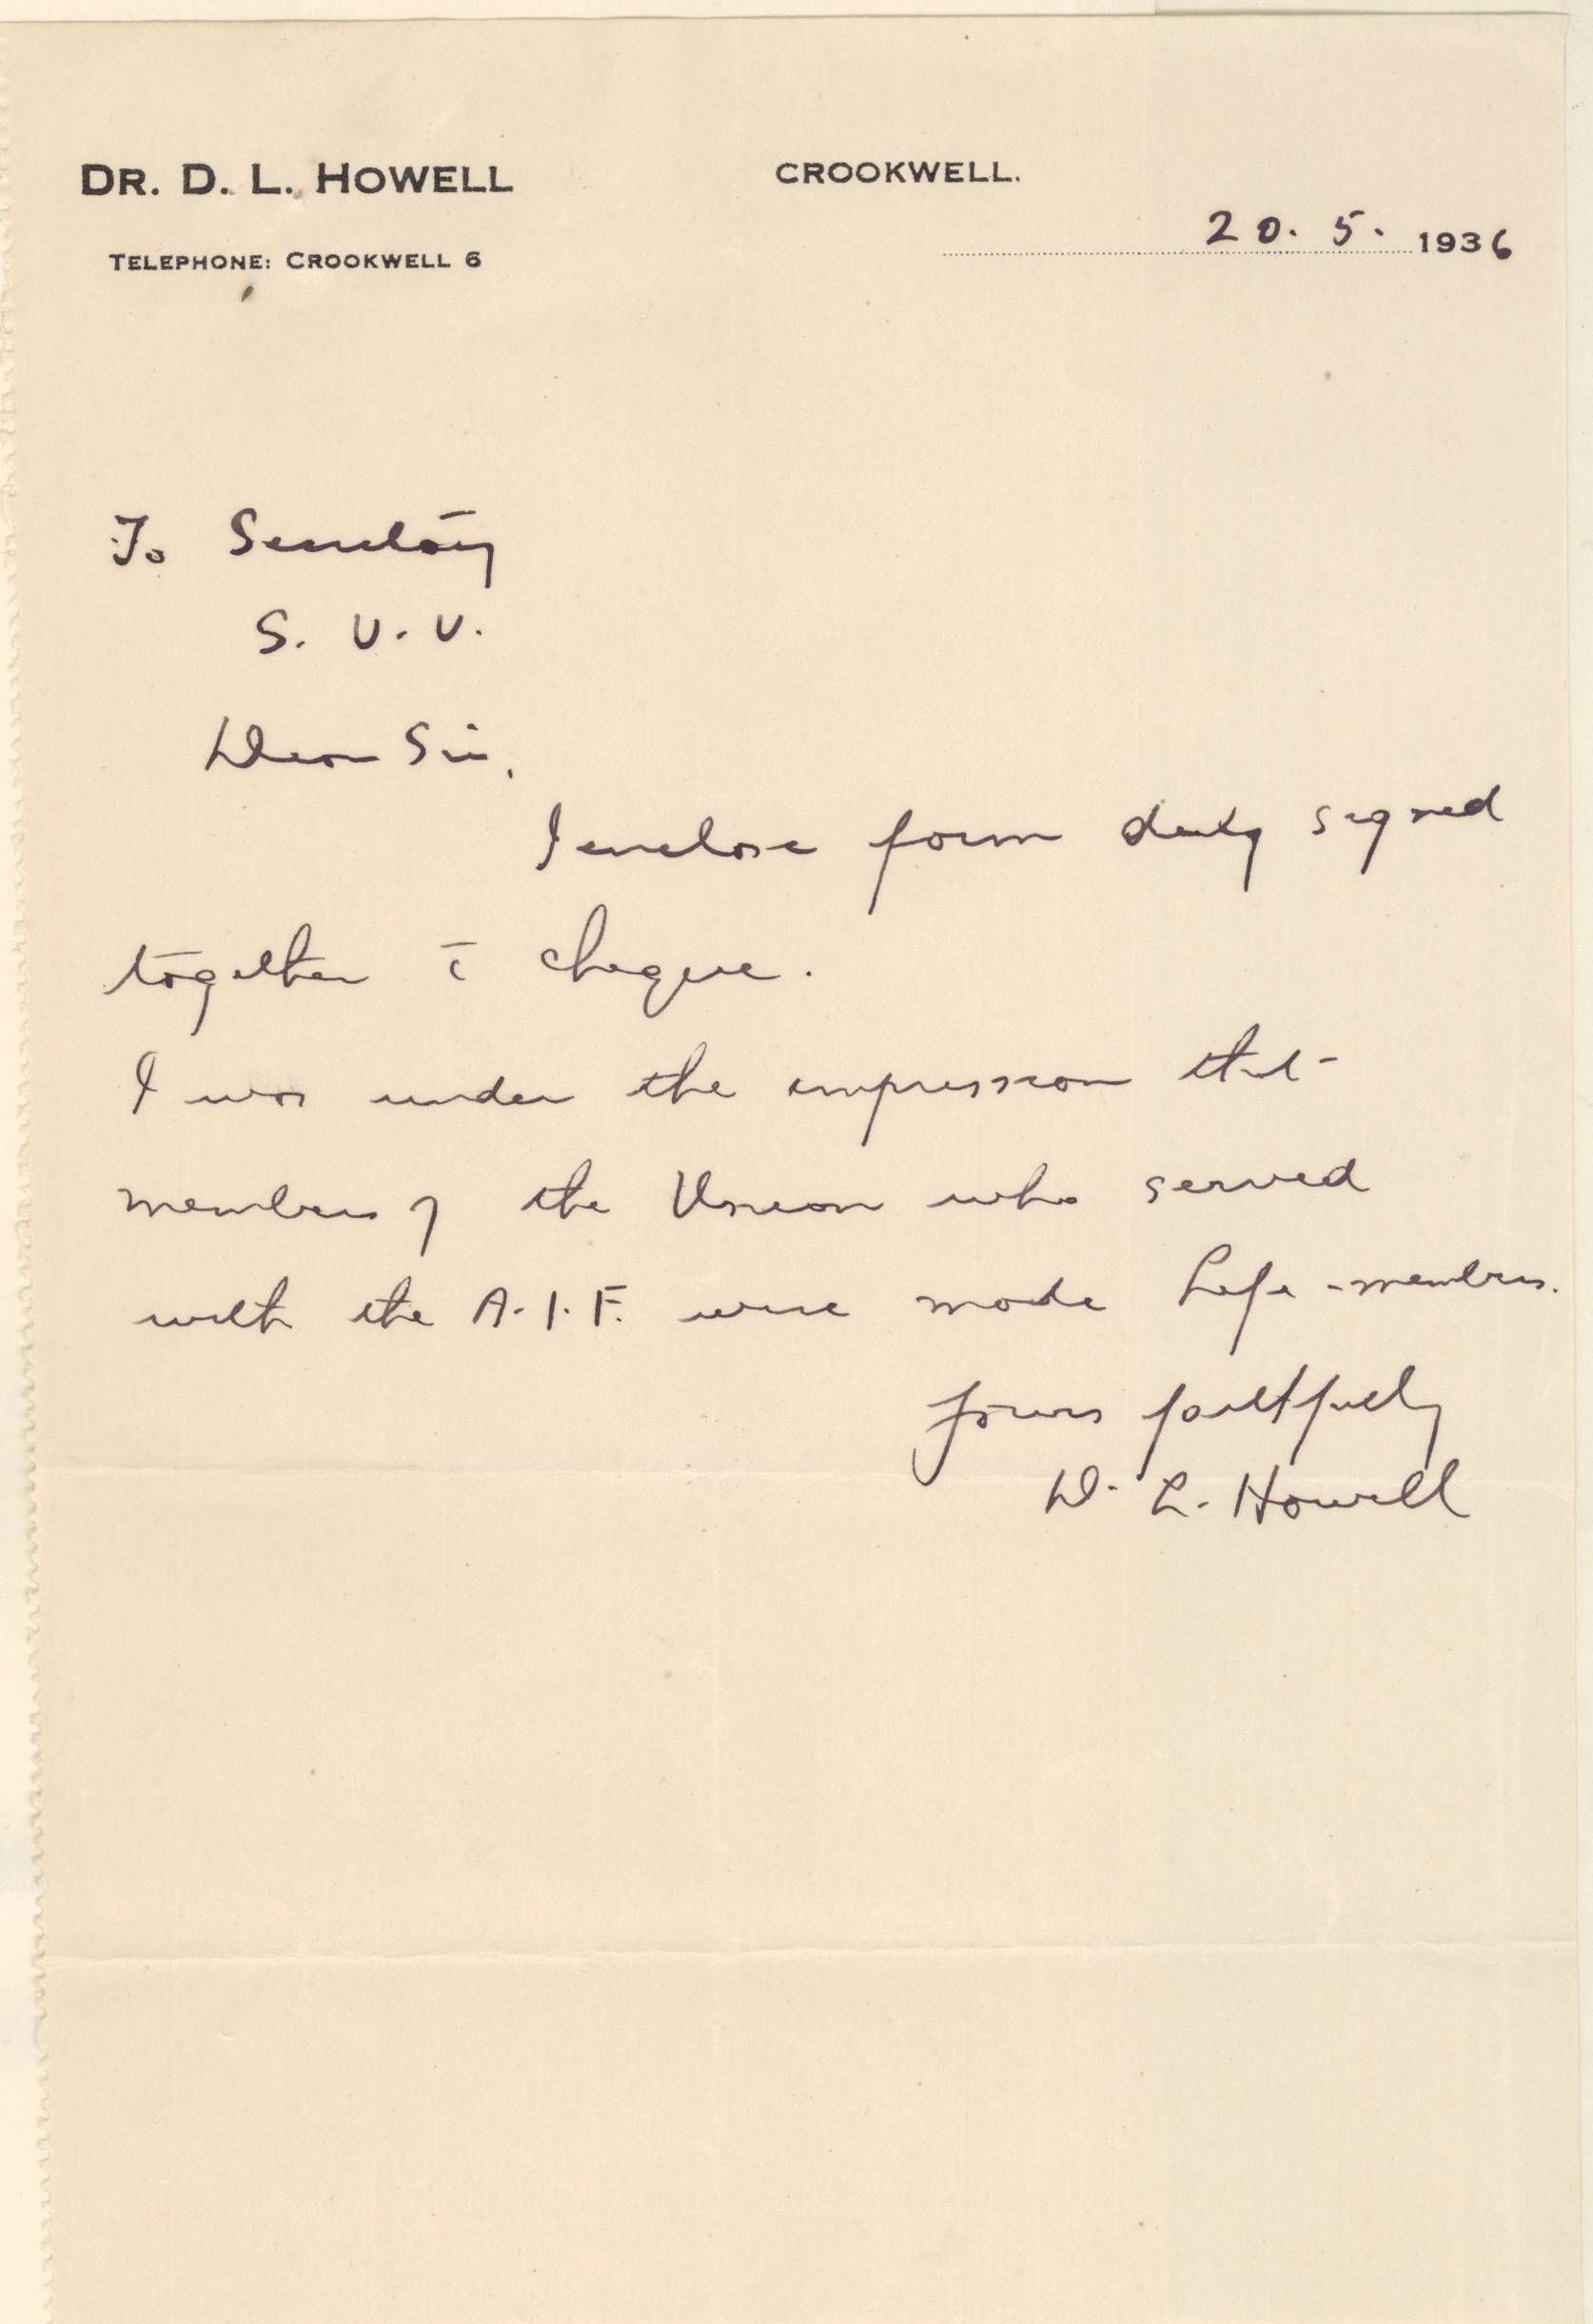 DR. D. L. HOWELL
CROOKWELL.
TELEPHONE: CROOKWELL 6
20. 5. 1936
To Secretary
S. U. U.
Dear Sir,
I enclose form duly signed
together c̄ cheque.
I was under the impression that
members of the Union who served
with the A.I.F. were made Life-members.
Yours faithfully
D. L. Howell